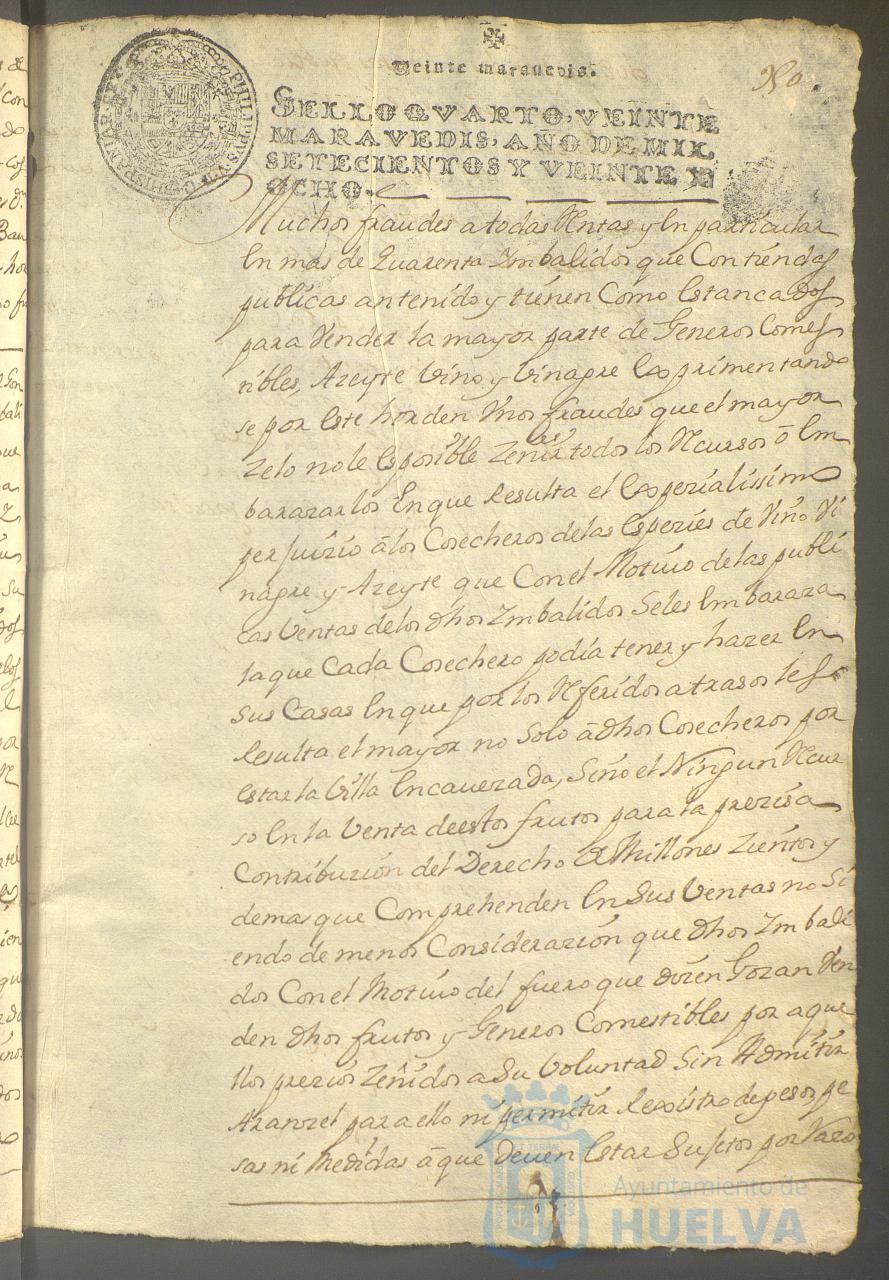 Veinte maravedis.
SELLO QVARTO, VEINTE
MARAVEDIS, AÑO DE MIL
SETECIENTOS Y VEINTE Y
OCHO.
Muchos fraudes a todas Rentas y En particular
En mas de Quarenta Ymbalidos que Con tiendas
publicas an tenido y tienen Como Estancados
para Vender la mayor parte de Generos Comes
tibles, Azeyte Vino y Vinagre Experimentando
se por Este horden Unos fraudes que el mayor
Zelo no le Es posible Zeñir todos los Recursos ô Em
barazarlos En que Resulta el Expezialissimo
perJuizio â los Cosecheros de las Espezies de Vino Vi
nagre y Azeyte que Con el Motiuo de las publi
cas Ventas de los dhos Ymbalidos Se les Embaraza
la que Cada Cosechero podia tener y hazer En
Sus Casas En que por los Referidos atrasos les
Resulta el mayor no Solo â dhos Cosecheros por
estar la Villa Encauezada, Sino el Ningun Recur
so En la Venta de estos frutos para la prezisa
Contribuzion del Derecho de Millones Zientos y
demas que Comprehenden En Sus Ventas no Si
endo de menos Considerazion que dhos Ymbali
dos Con el Motiuo del fuero que dizen Gozan Ven
den dhos frutos y Generos Comestibles por aque
llos prezios Zeñidos a Su Voluntad Sin Admitir
Aranzel para ello ni permitir Rexistro de pesos, pe
sas ni Medidas â que deuen Estar Sujetos por
Ayuntamiento de
HUELVA